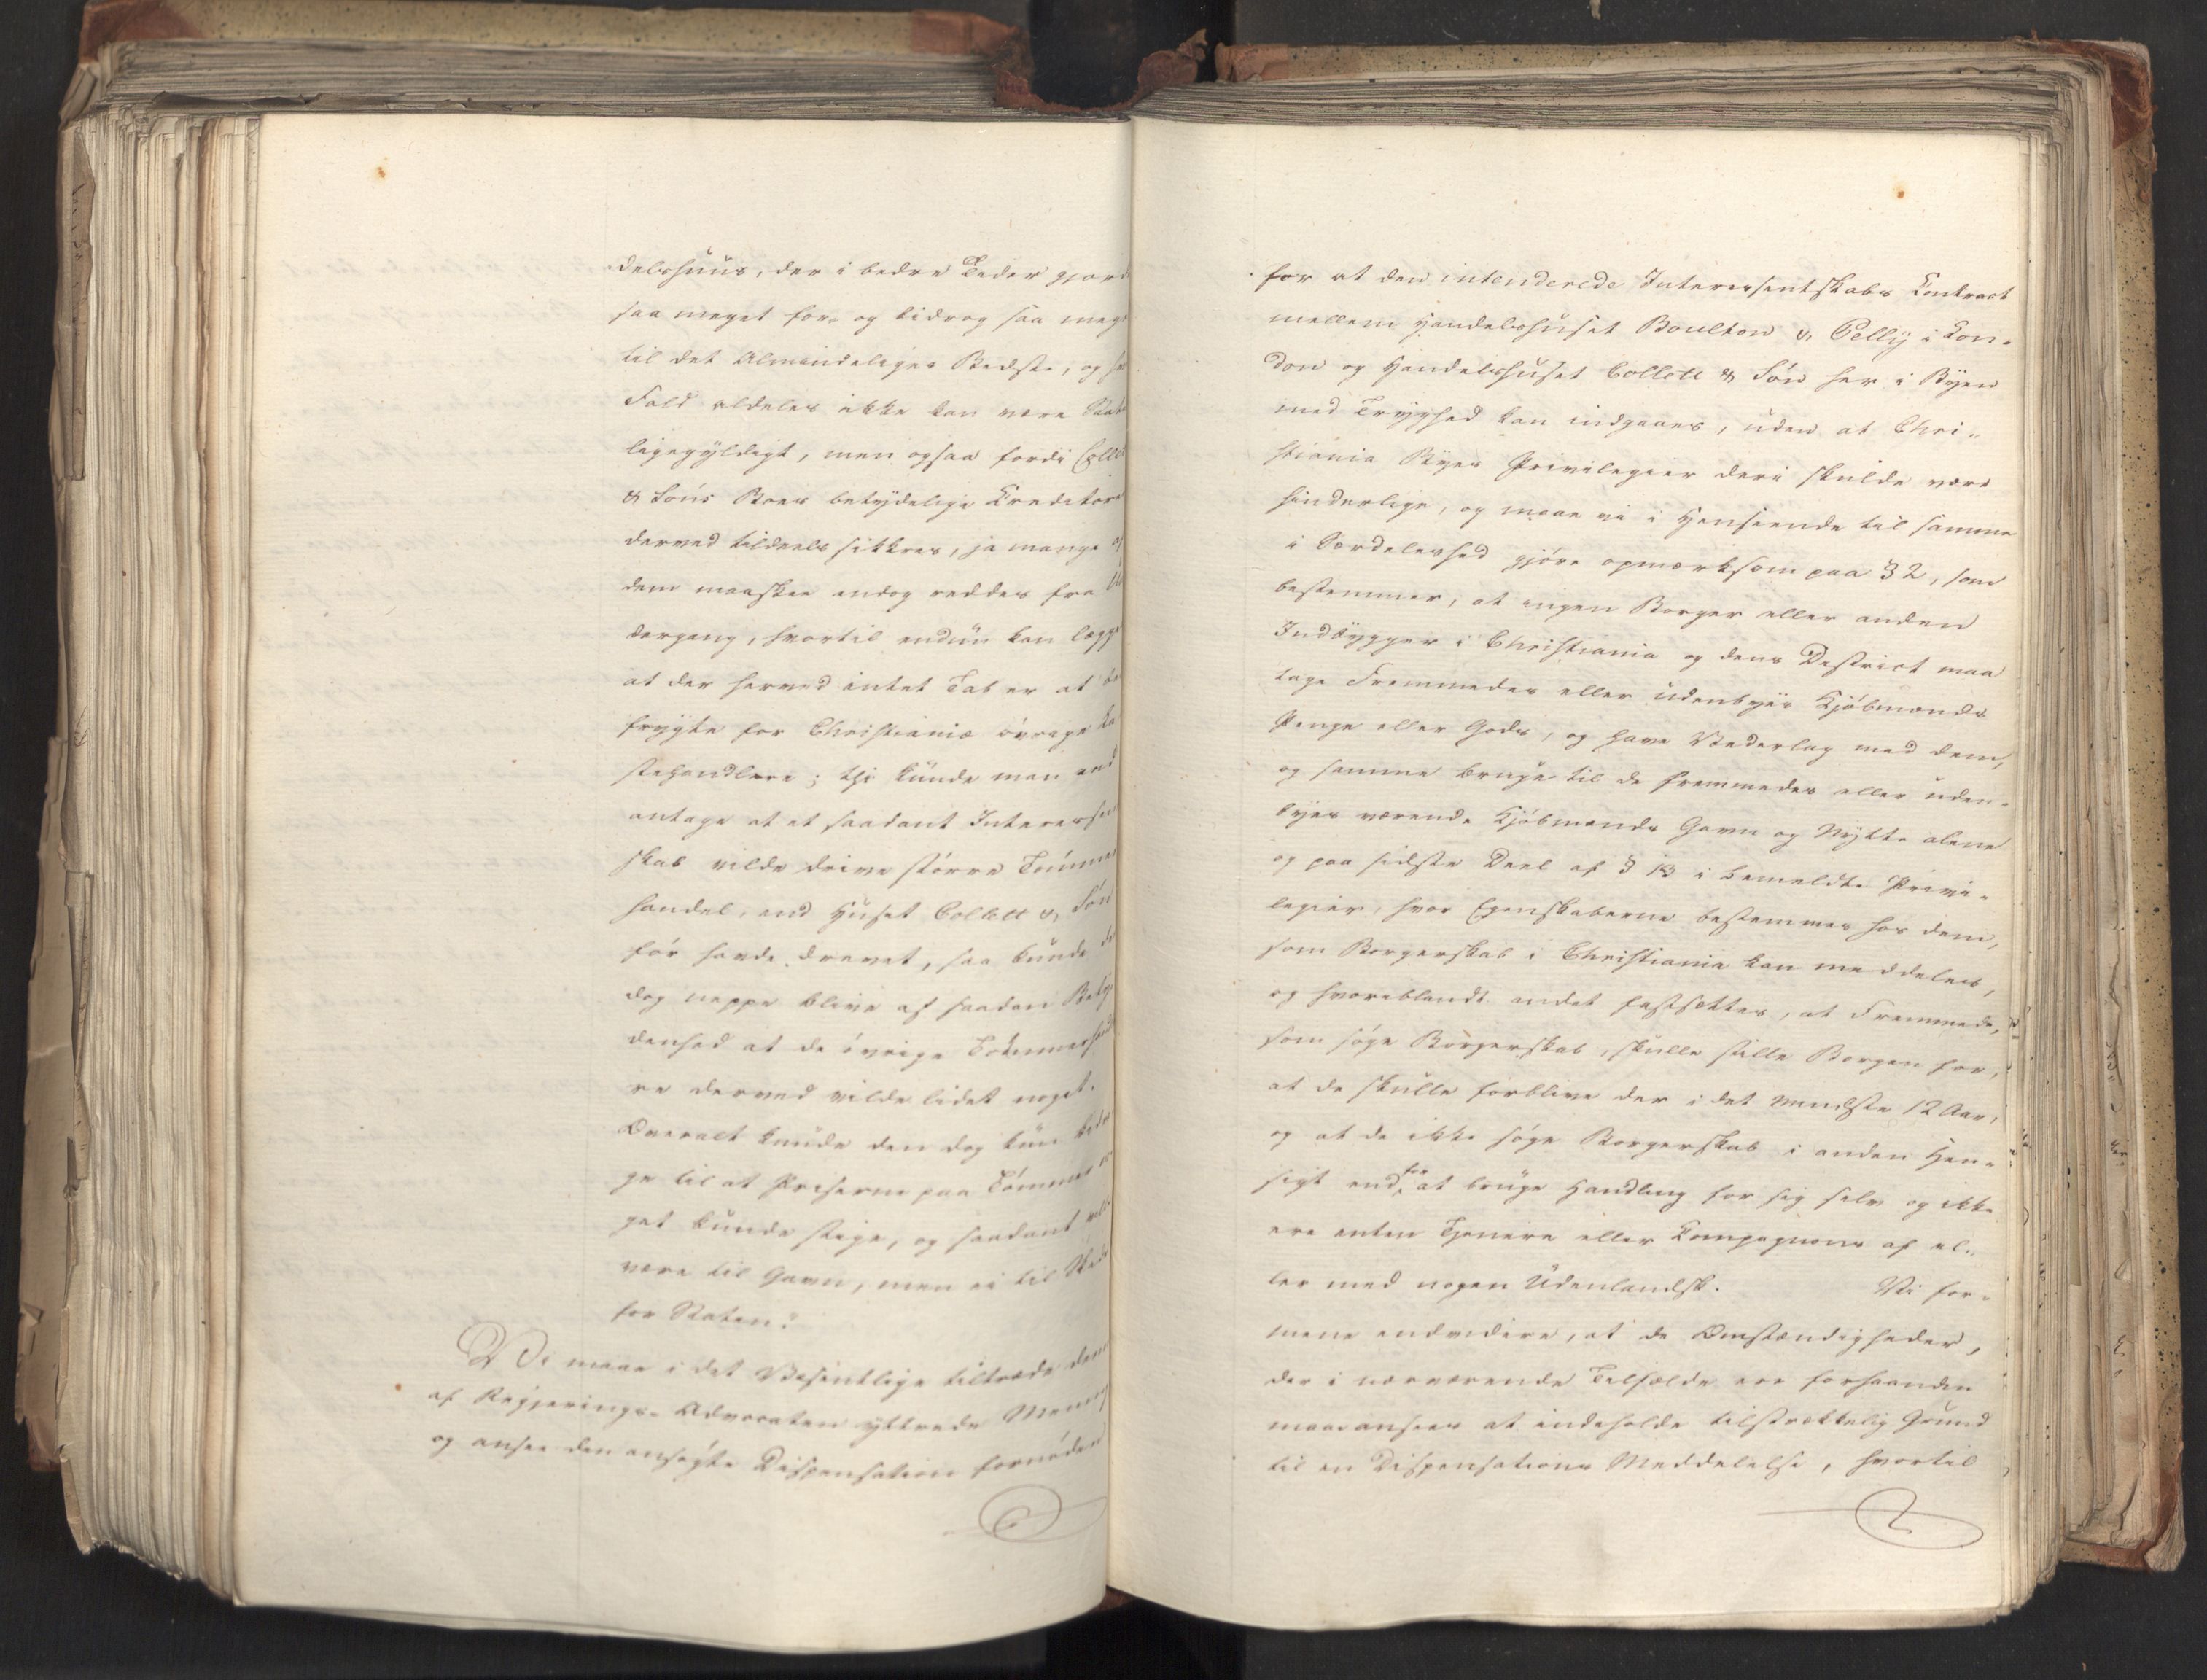 delshuus, der i bedre Tider gjord
saa meget for, og bidrog saa meg
til det Almindeliges Bedste, og h
Fald aldeles ikke kan være Stat
ligegyldigt, men ogsaa fordi Colle
& Søns Boes betydelige Creditore
derved tildeels sikkres, ja mange a
dem maaskee endog reddes fra U
dergang, hvortil endnu kan lægge
at der herved intet Tab er at be
frygte for Christianiæ øvrige La
stehandlere; thi kunde man end
antage at et saadant Interessen
skab vilde drive større Tømme
handel, end Huset Collett & Søn
før havde drevet, saa kunde de
dog neppe blive af saadan Bety
denhed at de øvrige Tømmerhand
re derved vilde lidet noget.
Overalt kunde den dog kun bidra
ge til at Priserne paa Tømmer no
get kunde stige, og saadant vill
være til Gavn, men ei til Skade
for Staten."
Vi maae i det Væsentlige tiltræde den
af Regjerings-Advocaten yttrede Mening
og ansee den ansøgte Dispensation fornøden
for at den intenderede Interessentskabs Contract
mellem Handelshuset Boulton & Pelly i Lon-
don og Handelshuset Collett & Søn her i Byen
med Tryghed kan indgaaes, uden at Chri-
stiania Byes Privilegier deri skulde være
hinderlige, og maae vi i Henseende til samme
i Særdeleshed gjøre opmærksom paa § 2, som
bestemmer, at ingen Borger eller anden
Indbygger i Christiania og dens District maa
tage Fremmedes eller udenbyes Kjøbmænds
Penge eller Gods, og have Vederlag med dem,
og samme bruge til de fremmedes eller uden-
byes værende Kjøbmænds Gavn og Nytte alene
og paa sidste Deel af § 13 i bemeldte Privi-
legier, hvor Egenskaberne bestemmes hos dem,
som Borgerskab i Christiania kan meddeles,
og hvoriblandt andet fastsættes, at Fremmede,
som søge Borgerskab, skulle stille Borgen for,
at de skulle forblive der i det mindste 12 Aar,
og at de ikke søge Borgerskab i anden Hen-
sigt end for at bruge Handling for sig selv og ikke
ere enten Tjenere eller Compagnons af el-
ler med nogen Udenlandsk. Vi for-
mene endvidere, at de Omstændigheder,
der i nærværende Tilfælde ere forhaanden
maae ansees at indeholde tilstrækkelig Grund
til en Dispensations Meddelelse, hvortil